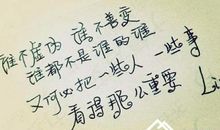 谁不虚伪 谁不善变
谁都不是谁的谁
又何必把一些人 一些事
看得那么重要